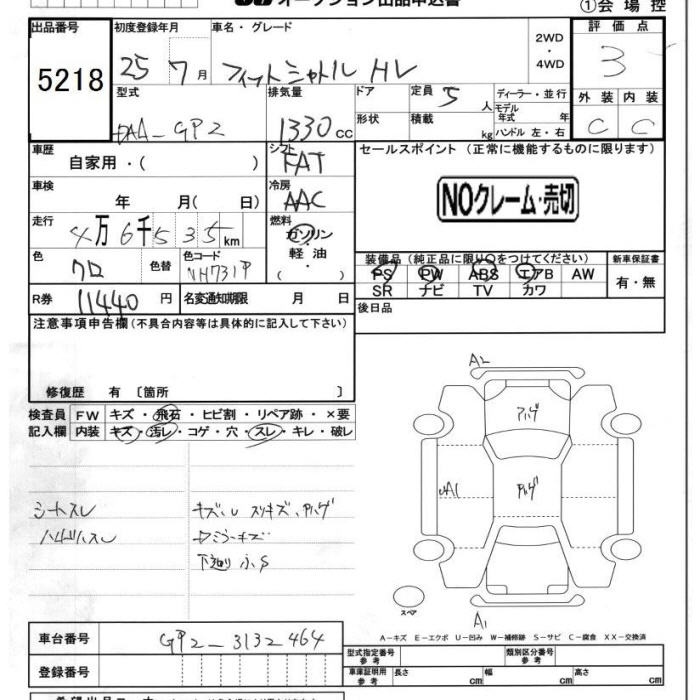 オークション出品申込書
①会場控
出品番号 初度登録年月 車名・グレード 2WD・4WD 評価点
5218 25 7月 フィットシャトル HV 3
型式 排気量 ドア 定員 5人 ディーラー・並行 外装 内装
DAA-GP2 1330cc 形状 積載 kg モデル年式 年 ハンドル 左・右 C C
車歴 自家用・( ) シフト FAT セールスポイント (正常に機能するものに限ります)
車検 年 月( 日) 冷房 AAC NOクレーム・売切
走行 4万6千535km 燃料 ガソリン・軽油・( )
装備品 (純正品に限り○をつけてください) 新車保証書
色 クロ 色替 色コード NH731P PS PW ABS エアB AW 有・無
SR ナビ TV カワ
R券 11440円 名変通知期限 月 日 後日品
注意事項申告欄(不具合内容等は具体的に記入して下さい)
修復歴 有 〔箇所 〕
検査員 FW キズ・飛石・ヒビ割・リペア跡・×要
記入欄 内装 キズ・汚レ・コゲ・穴・スレ・キレ・破レ
シートスレ キズ,U スリキズ,ハゲ
ハンドルスレ
下廻り小S
A2
ハゲ
A1
ハゲ
スペア
A1
A-キズ E-エクボ U-凹み W-補修跡 S-サビ C-腐食 XX-交換済
車台番号 GP2-3132464 型式指定番号 参考 類別区分番号 参考
登録番号 車庫証明用 参考 長さ cm 幅 cm 高さ cm